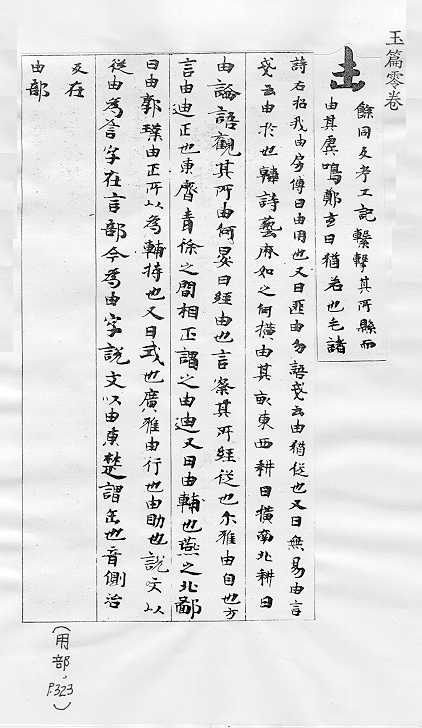 玉篇零卷
餘同反考工記繫擊其所縣而
由其虡鳴鄭玄曰猶若也毛諸
詩右招我由房傳曰由用也又曰匪由勿語箋云由猶從也又曰無易由言
箋云由於也韓詩藝麻如之何橫由其畝東西耕曰橫南北耕曰
由論語觀其所由何晏曰經由也言察其所經從也尔雅由自也方
言由迪正也東齊青徐之間相正謂之由迪又曰由輔也燕之北鄙
曰由郭璞由正所以為輔持也又曰式也廣雅由行也由助也說文以
從由為字在言部今為由字說文以由東楚謂缶也音側治
反在
由部
(用部,P.323)